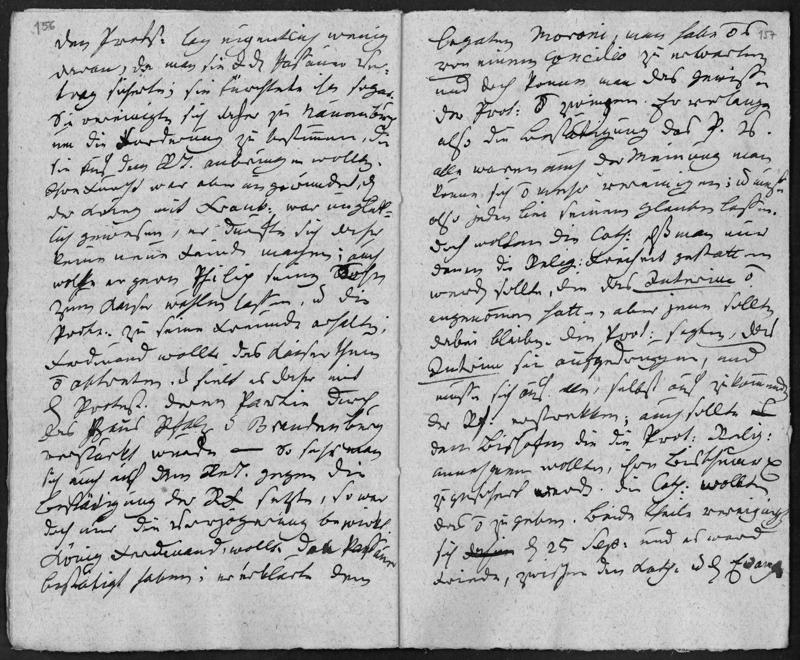 156
den Protest. lag eigentlich wenig
daran, da man sie d. d. Passauer Ver-
trag sicherte; sie fürchteten sogar
Sie vereinigten sich daher zu Naumburg
um die Forderung zu bestimmen, die
sie auf dem RT. anbringen wollten.
Ihre Furcht war aber ungegründet, d.
der Krieg mit Frankr. war unglük-
lich gewesen, er durfte sich daher
keine neue Feinde machen; auch
wollte er gern Philip seinen Sohn
zum Kaiser wählen lassen, u. die
Protest. zu seine Freunde erhalten;
Ferdinand wollte das Kaiserthum
abtreten, u. hielt es daher mit
d. Protest. deren Parthie durch
das Haus Pfalz u. Brandenburg
verstärkt wurde — So sehr man
sich auch auf dem RT. gegen die
bestätigung der RF. setzte, so war
doch nur die Verzögerung bewirkt
König Ferdinand, wollte den Passauer
bestätigt haben; er erklärte dem
157
legaten Moroni, man habe
von einem Concilio zu erwarten
und doch könne man das gewissen
der Prot: zwingen. Er verlange
also die bestätigung des P. V.
alle waren auch der Meinung man
könne sich mehr vereinigen; u. müsse
also jeden bei seinem glauben lassen.
Doch wollten die Cath. daß man nur
denen die Relig: Freiheit gestatten
werden sollte, die das Interim
angenommen hatten, aber jene sollten
dabei bleiben. Die Prot: sagten, das
Interim sie aufgedrungen, und
müsse sich auf alle, selbst auf zukommende
der RF. erstrekken; auch sollte
den Bischofen die die Prot: Relig:
annehmen wollten, ihre Bisthümer
zugesichert werden. die Cath: wollten
das zugeben. beide theile vereinigten
sich d. 25 Sept. und es ward
Friede, zwischen den Kath. u. d. Evang.